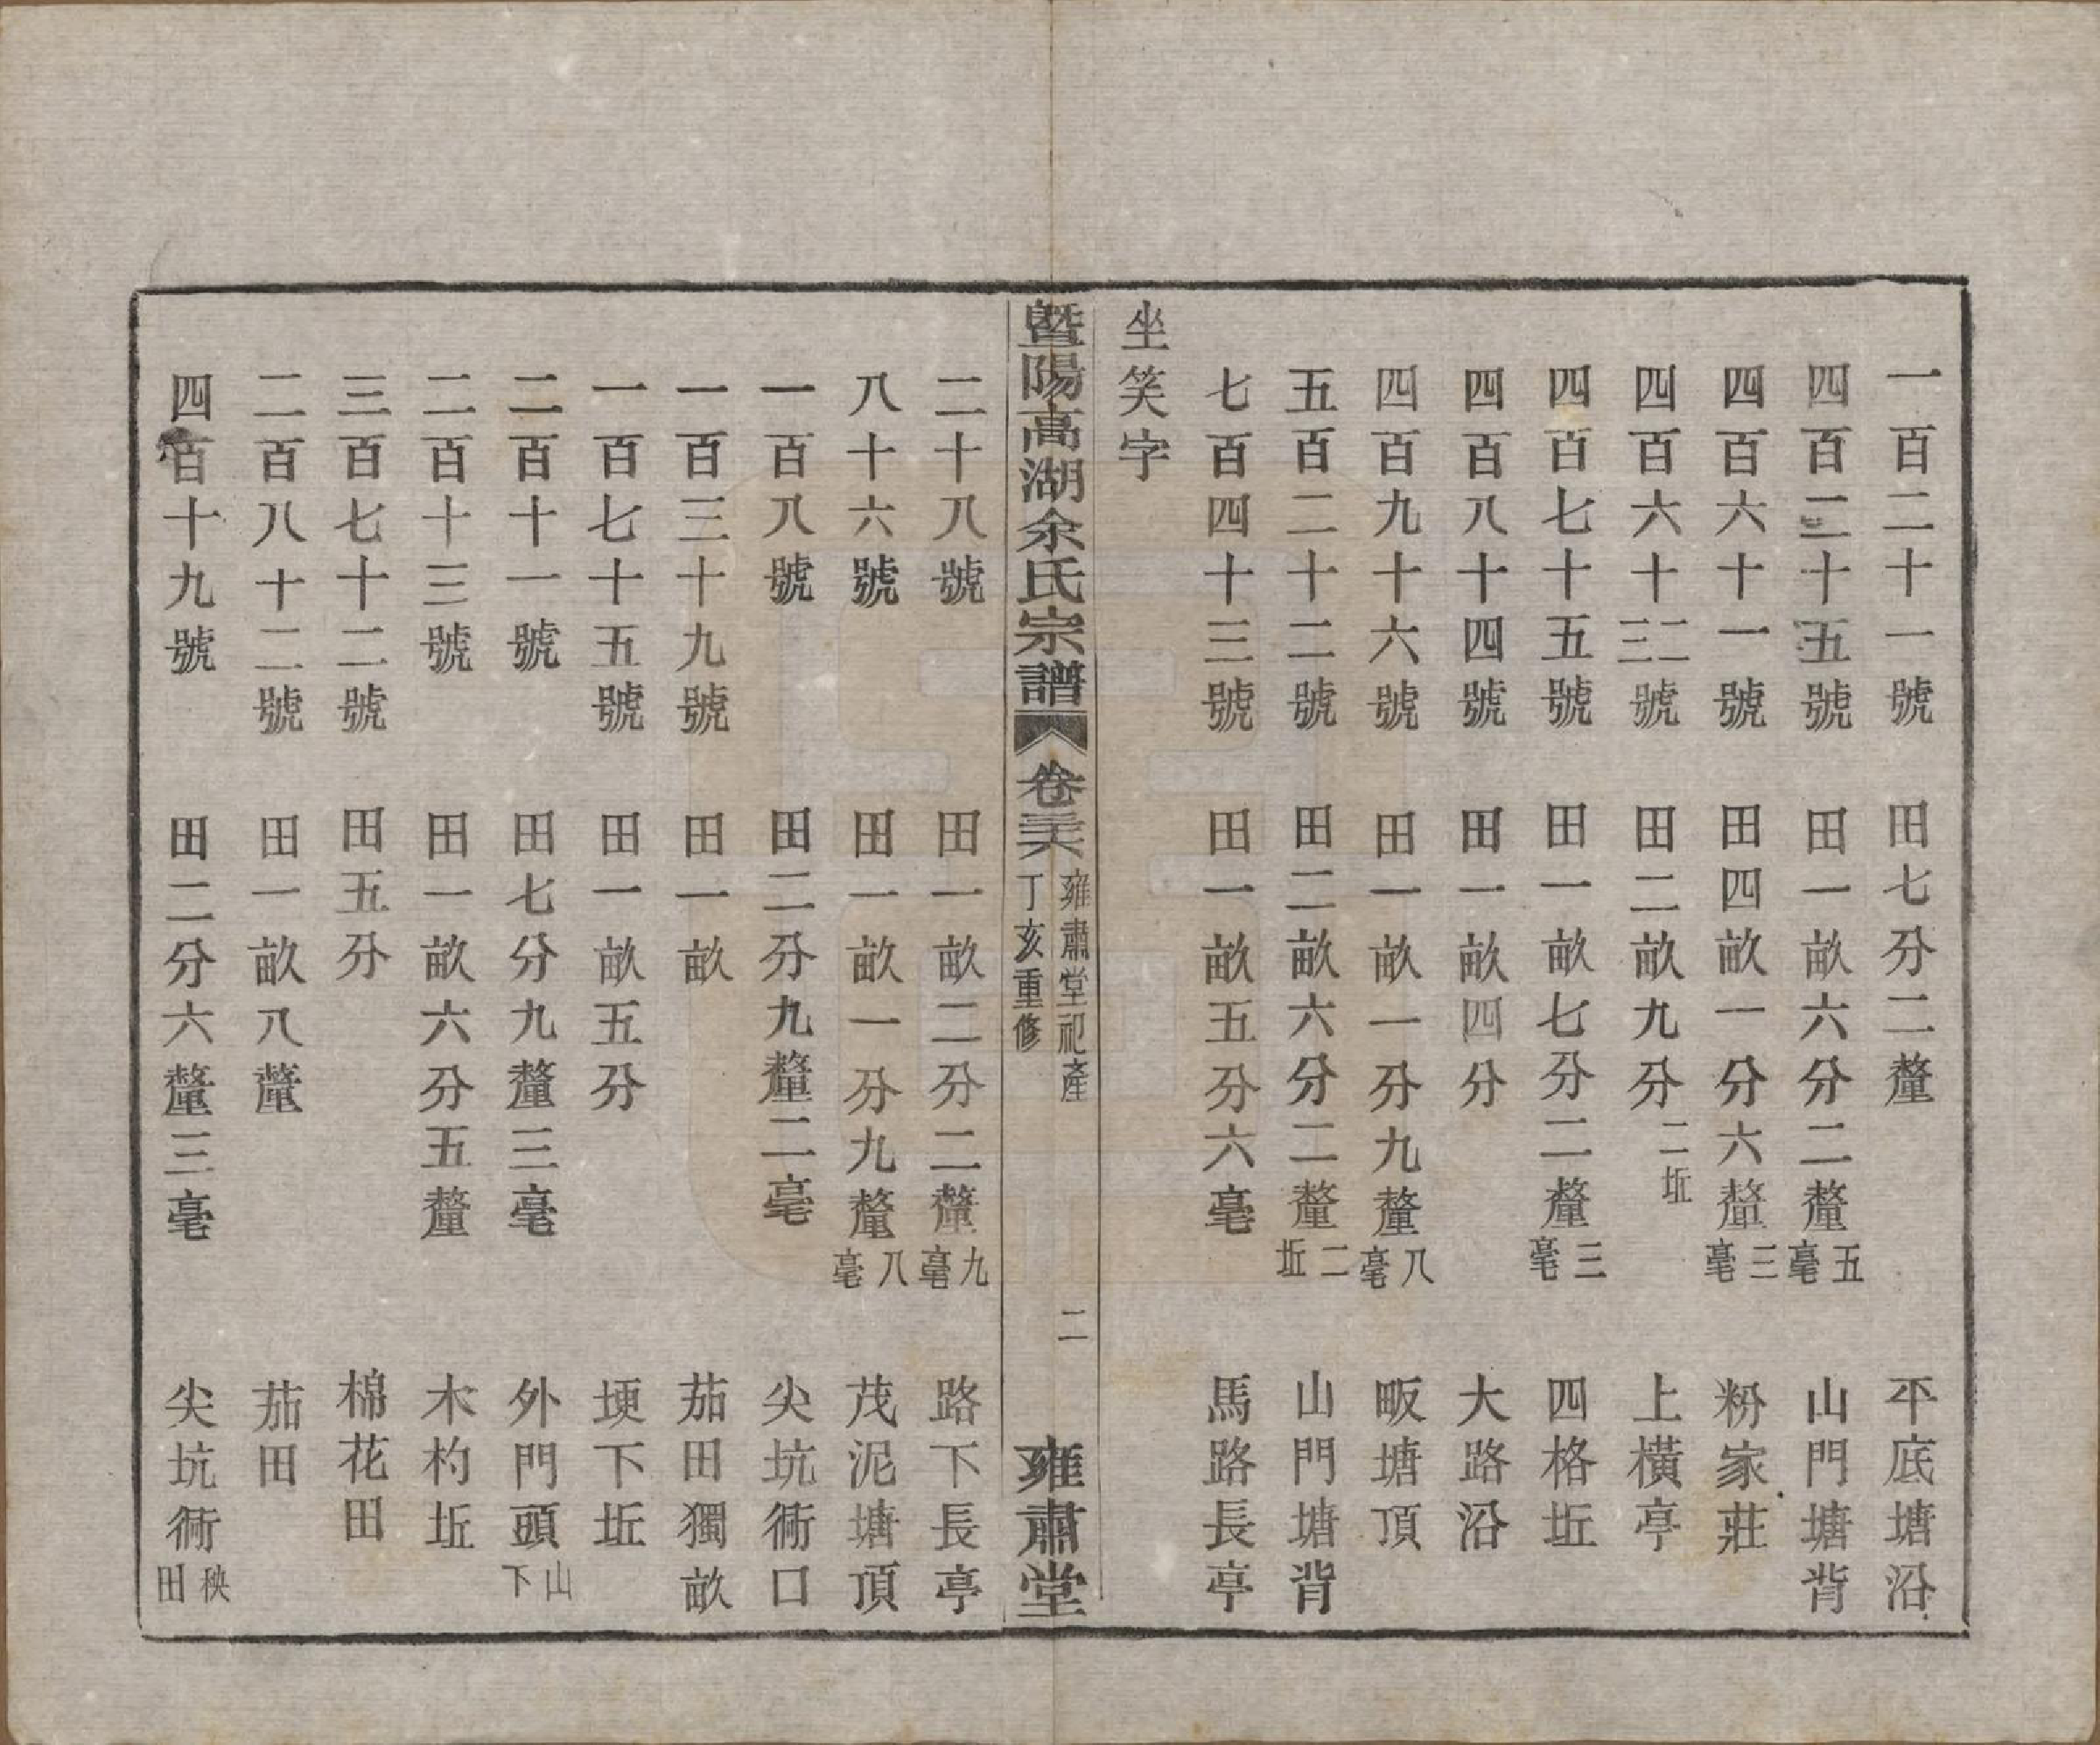 一百二十一號　田七分二釐　平底塘沿
四百二十五號　田一畝六分二釐五毫　山門塘背
四百六十一號　田四畝一分六釐三毫　粉家莊
四百六十二三號　田二畝九分二坵　上橫亭
四百七十五號　田一畝七分二釐三毫　四格坵
四百八十四號　田一畝四分　大路沿
四百九十六號　田一畝一分九釐八毫　畈塘頂
五百二十二號　田二畝六分二釐二坵　山門塘背
七百四十三號　田一畝五分六毫　馬路長亭
坐笑字
暨陽高湖余氏宗譜　卷三六　雍肅堂祀產　丁亥重修　二　雍肅堂
二十八號　田一畝二分二釐九毫　路下長亭
八十六號　田一畝一分九釐八毫　茂泥塘頂
一百八號　田二分九釐二毫　尖坑衕口
一百三十九號　田一畝　茄田獨畝
一百七十五號　田一畝五分　埂下坵
二百十一號　田七分九釐三毫　外門頭山下
二百十三號　田一畝六分五釐　木杓坵
三百七十二號　田五分　棉花田
二百八十二號　田一畝八釐　茄田
四百十九號　田二分六釐三毫　尖坑衕秧田